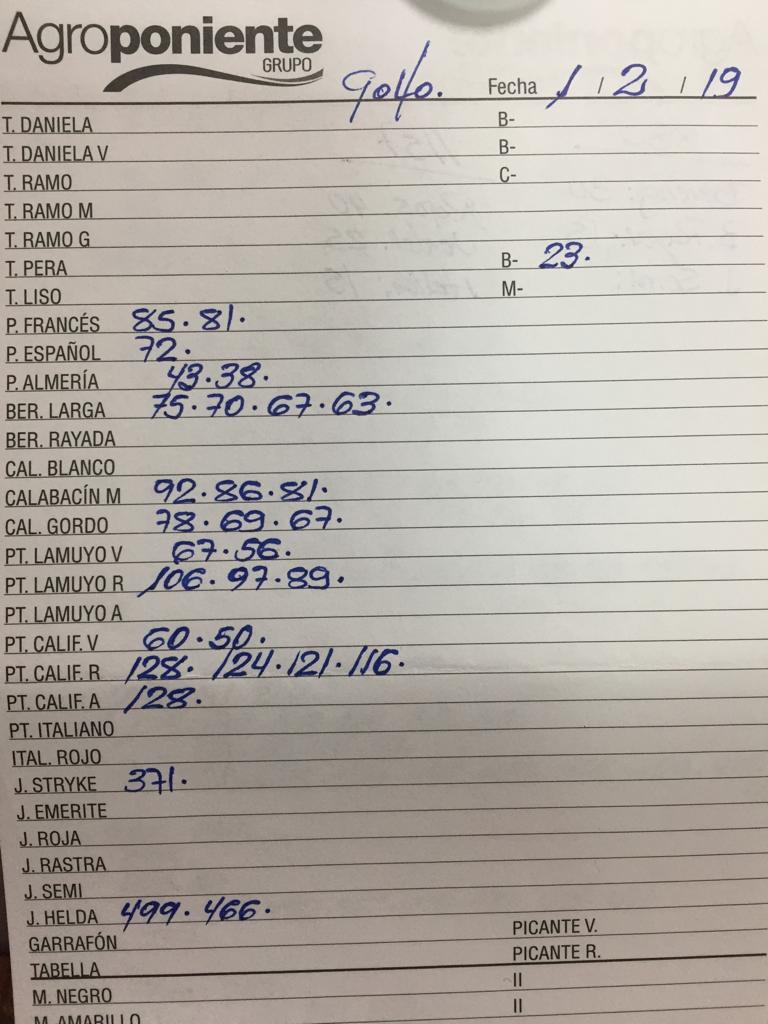 Agroponiente
GRUPO
Golfo. Fecha 1 / 2 / 19
T. DANIELA B-
T. DANIELA V B-
T. RAMO C-
T. RAMO M
T. RAMO G
T. PERA B- 23.
T. LISO M-
P. FRANCÉS 85. 81.
P. ESPAÑOL 72.
P. ALMERÍA 43. 38.
BER. LARGA 75. 70. 67. 63.
BER. RAYADA
CAL. BLANCO
CALABACÍN M 92. 86. 81.
CAL. GORDO 78. 69. 67.
PT. LAMUYO V 67. 56.
PT. LAMUYO R 106. 97. 89.
PT. LAMUYO A
PT. CALIF. V 60. 50.
PT. CALIF. R 128. 124. 121. 116.
PT. CALIF. A 128.
PT. ITALIANO
ITAL. ROJO
J. STRYKE 371.
J. EMERITE
J. ROJA
J. RASTRA
J. SEMI
J. HELDA 499. 466.
GARRAFÓN PICANTE V.
TABELLA PICANTE R.
M. NEGRO II
M. AMARILLO II